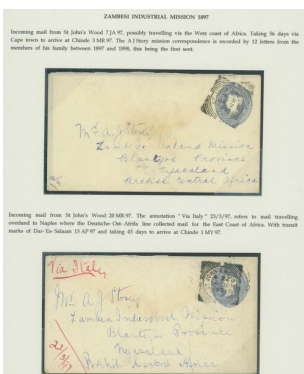 ZAMBESI INDUSTRIAL MISSION 1897
Incoming mail from St John's Wood 7 JA 97, possibly travelling via the West coast of Africa. Taking 56 days via
Cape town to arrive at Chinde 3 MR 97. The A J Story mission correspondence is recorded by 12 letters from the
members of his family between 1897 and 1898, this being the first sent.
Mr A J Storey
Zambesi Inland Mission
Blantyre Province
Nyasaland
British Central Africa
Incoming mail from St John's Wood 20 MR 97. The annotation "Via Italy" 23/3/97, refers to mail travelling
overland to Naples where the Deutsche-Ost-Afrika line collected mail for the East Coast of Africa. With transit
marks of Dar-Es-Salaam 13 AP 97 and taking 43 days to arrive at Chinde 1 MY 97.
Via Italy
Mr A J Storey
Zambesi Industrial Mission
Blantyre Province
Nyasaland
British Central Africa
23/3/97